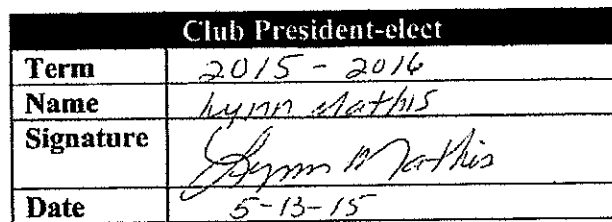 Club President-elect
Term 2015 - 2016
Name Lynn Mathis
Signature Lynn Mathis
Date 5-13-15